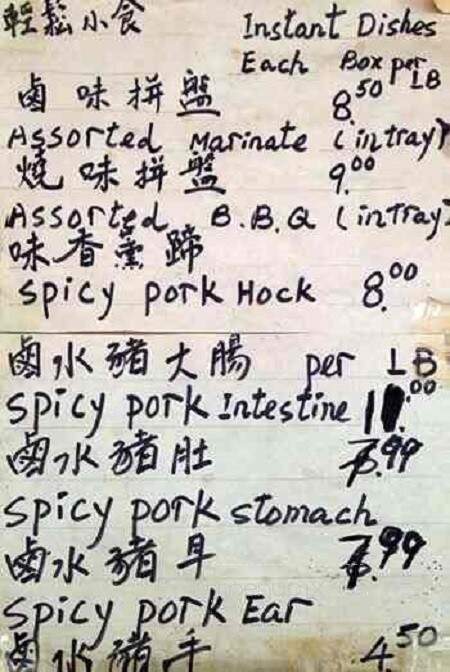 輕鬆小食 Instant Dishes
Each Box per LB
鹵味拼盤 8.50
Assorted Marinate (intray)
燒味拼盤 9.00
Assorted B.B.Q (intray)
味香熏蹄
Spicy pork Hock 8.00
鹵水豬大腸 per LB
Spicy pork Intestine 11.00
鹵水豬肚 .99
Spicy pork stomach
鹵水豬耳 .99
Spicy pork Ear
鹵水豬手 4.50